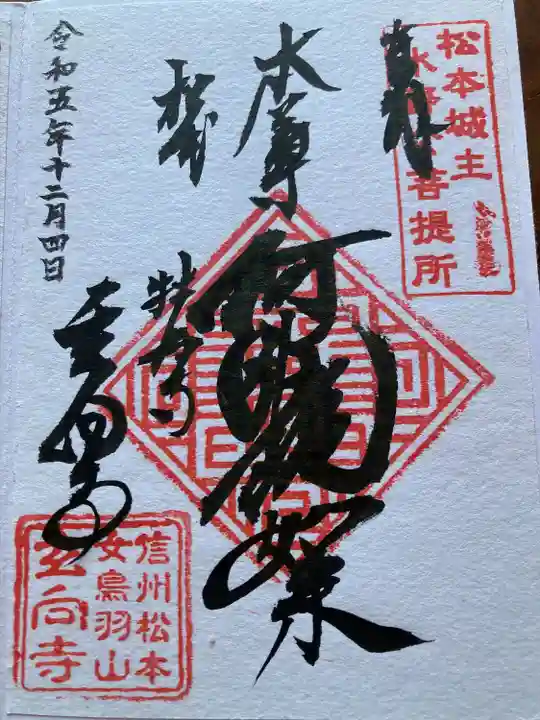 松本城主
水野家菩提所
奉拝
本尊
阿弥陀如来
松本
特命
玄向寺
令和五年十二月四日
信州松本
女鳥羽山
玄向寺